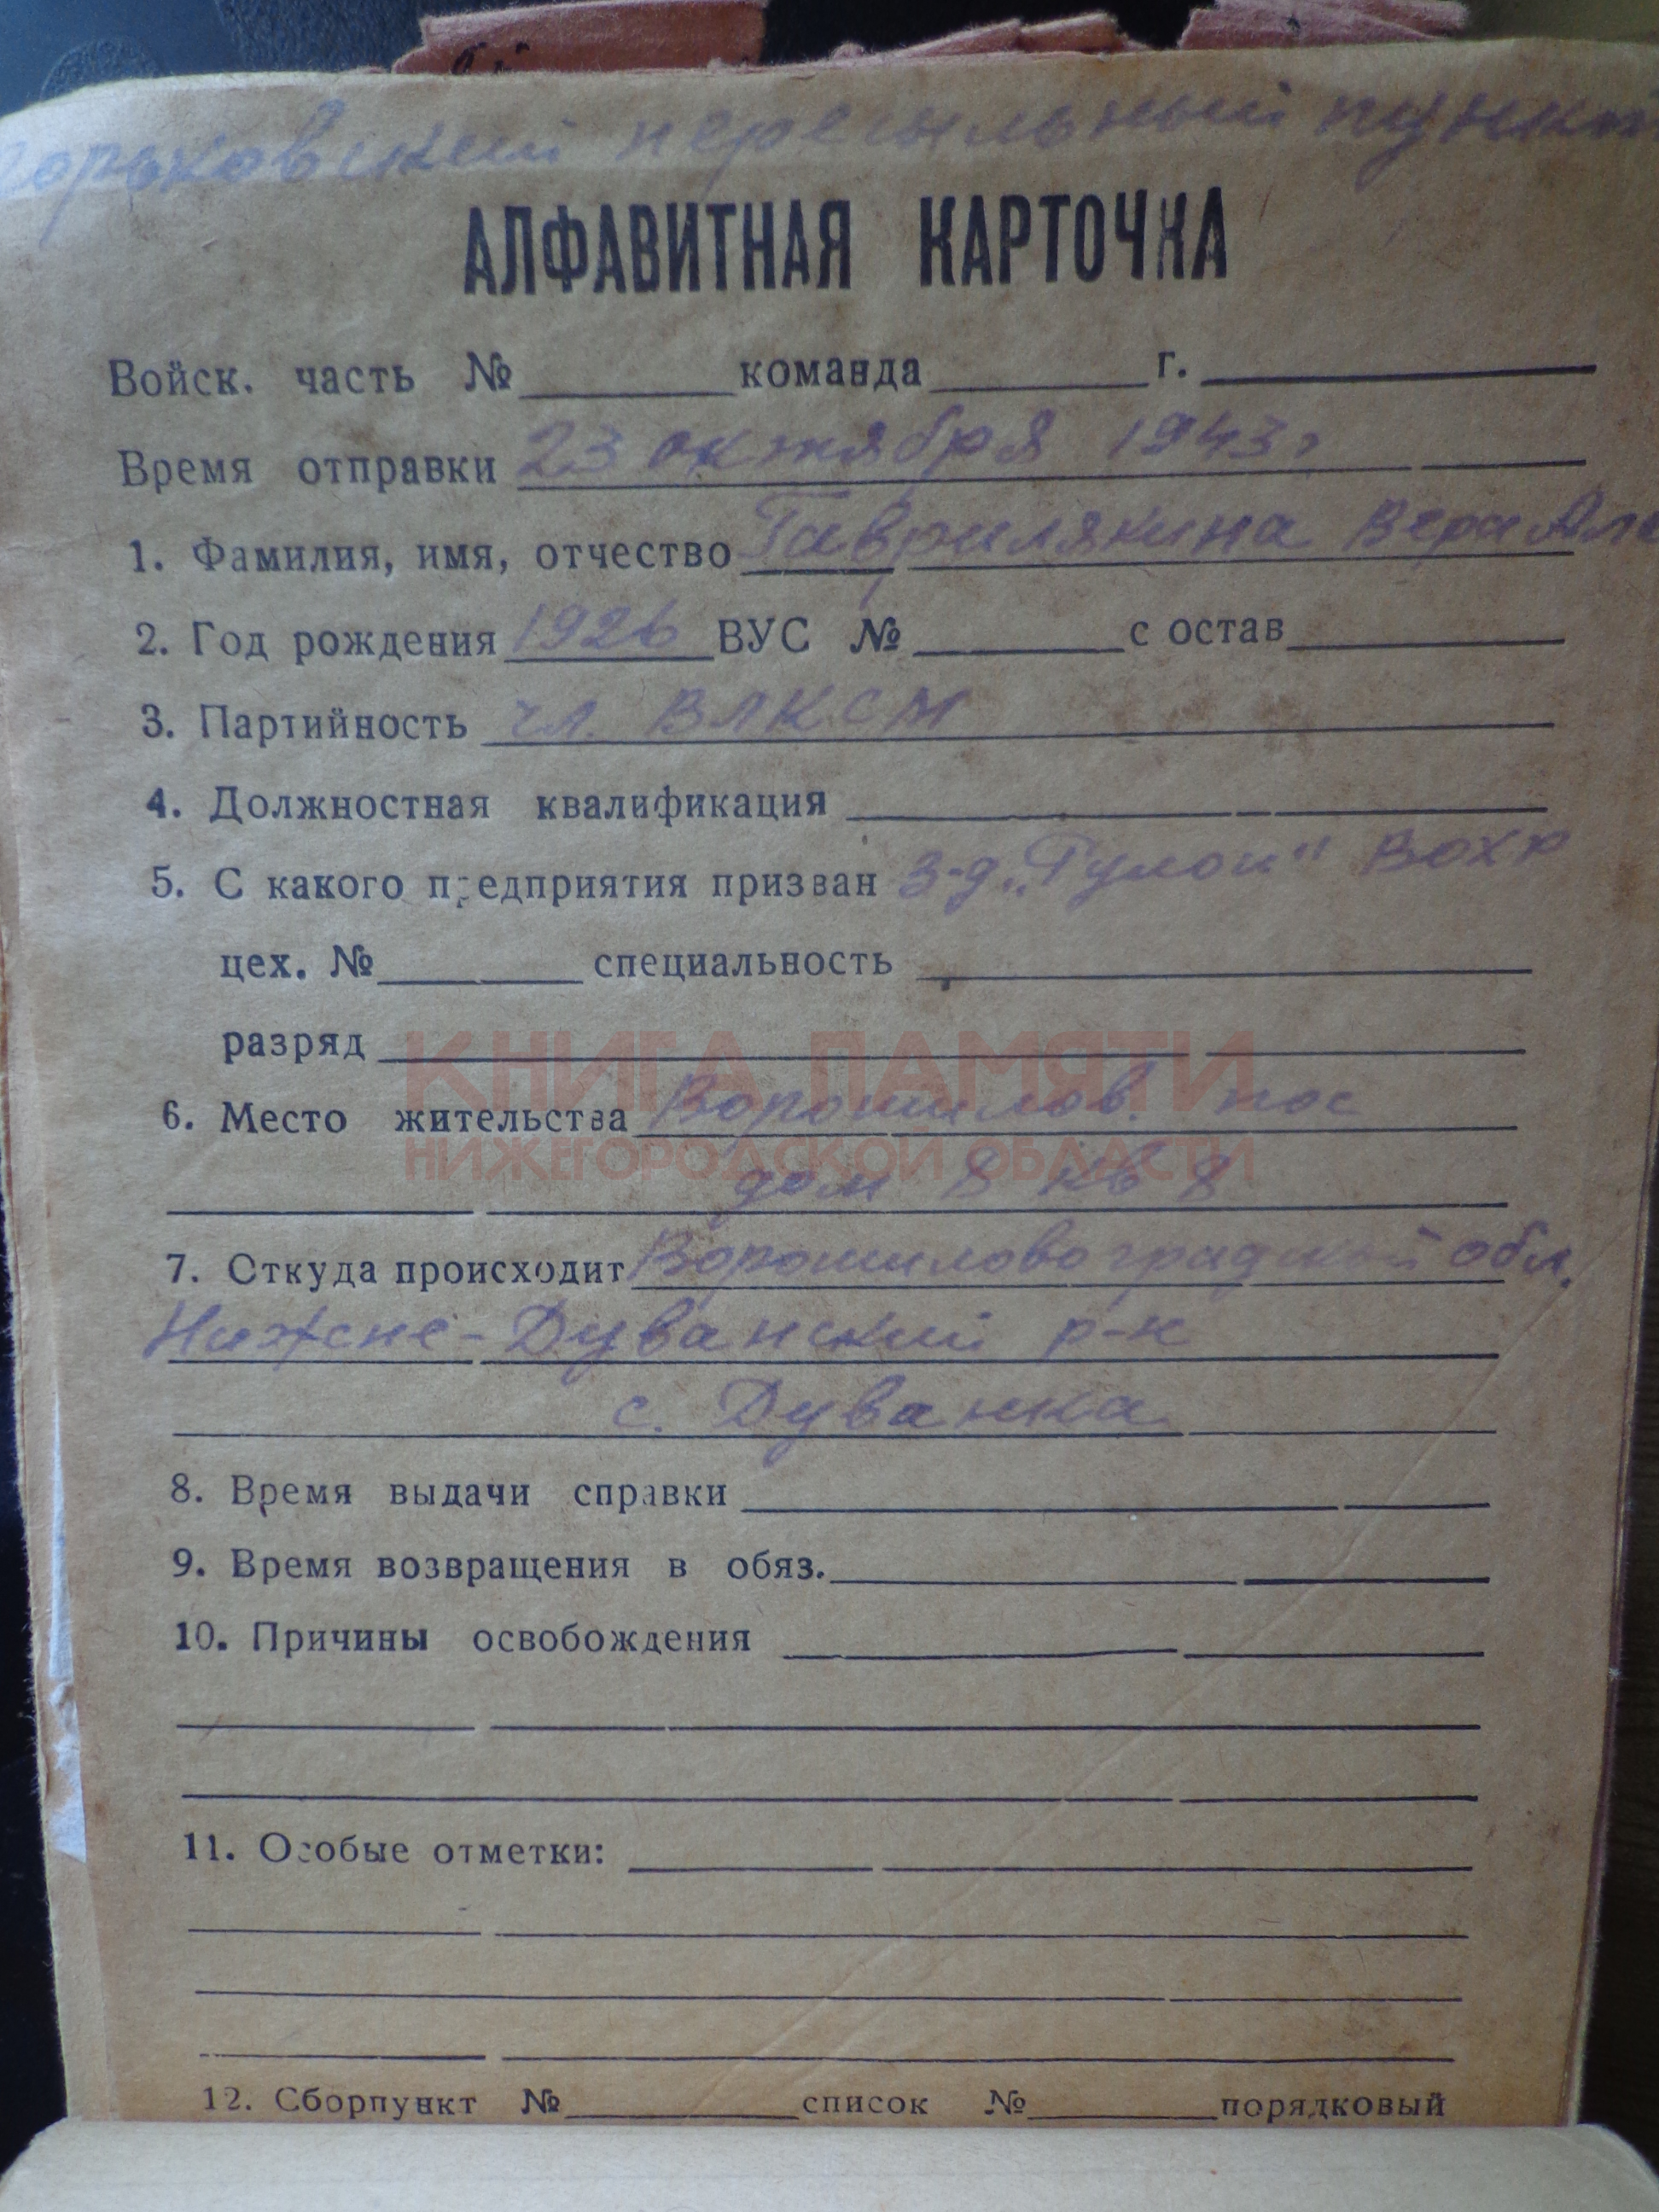 Горьковский пересыльный пункт
АЛФАВИТНАЯ КАРТОЧКА
Войск. часть № команда г.
Время отправки 23 октября 1943 г
1. Фамилия, имя, отчество Гаврилякина Вера Але
2. Год рождения 1926 ВУС № состав
3. Партийность чл. ВЛКСМ
4. Должностная квалификация
5. С какого предприятия призван з-д ВОХР
цех. № специальность
разряд
КНИГА ПАМЯТИ
6. Место жительства Ворошилов. пос
НИЖЕГОРОДСКОЙ ОБЛАСТИ
дом 8 кв 8
7. Откуда происходит Ворошиловоградский обл.
Нижне-Дуванский р-н
с. Дуванка
8. Время выдачи справки
9. Время возвращения в обяз.
10. Причины освобождения
11. Особые отметки:
12. Сборпункт № список № порядковый